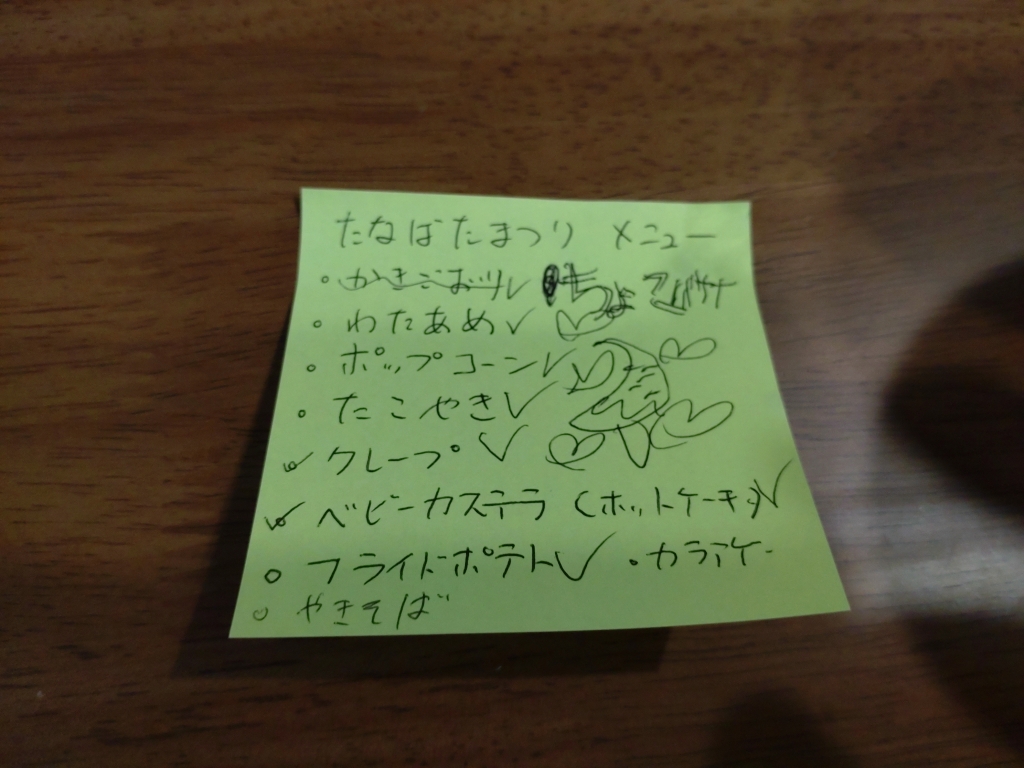 たなばたまつり メニュー
・かきごおり✓ ちょこバナナ
・わたあめ✓
・ポップコーン✓
・たこやき✓
✓クレープ✓
✓ベビーカステラ(ホットケーキ)✓
○フライドポテト✓ ・カラアゲー
○やきそば